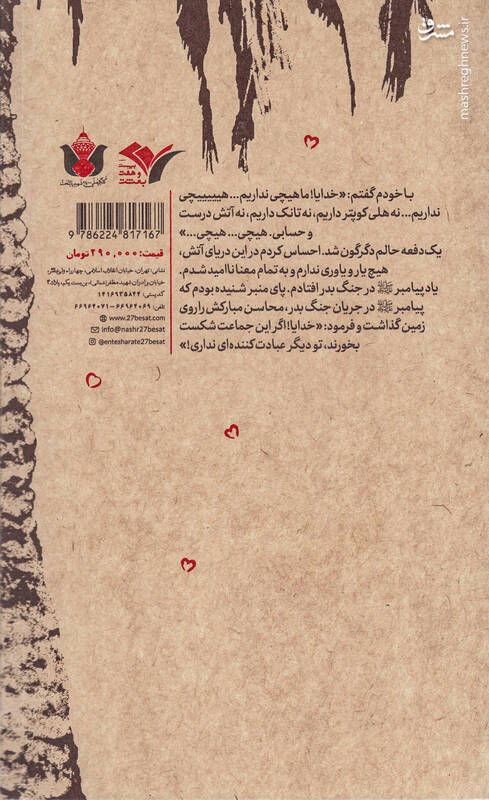 مشرق
mashreghnews.ir
بیست
و هفت
بعثت
9 786224 817167
قیمت: ۲۹۰,۰۰۰ تومان
نشانی: تهران، خیابان انقلاب اسلامی، چهارراه ولی‌عصر
خیابان برادران شهید مظفر(شمالی)، بن‌بست یکم، پلاک ۲
کد پستی: ۱۴۱۶۹۳۵۸۴۴
تلفن: ۶۶۹۶۴۰۶۹ - ۶۶۹۶۴۰۲۱
www.27besat.com
info@nashr27besat
@entesharate27besat
با خودم گفتم: «خدایا! ما هیچی نداریم... هیییییچی
نداریم... نه هلی کوپتر داریم، نه تانک داریم، نه آتش درست
و حسابی. هیچی... هیچی...»
یک دفعه حالم دگرگون شد. احساس کردم در این دریای آتش،
هیچ یار و یاوری ندارم و به تمام معنا ناامید شدم.
یاد پیامبر ﷺ در جنگ بدر افتادم. پای منبر شنیده بودم که
پیامبر ﷺ در جریان جنگ بدر، محاسن مبارکش را روی
زمین گذاشت و فرمود: «خدایا! اگر این جماعت شکست
بخورند، تو دیگر عبادت کننده‌ای نداری!»